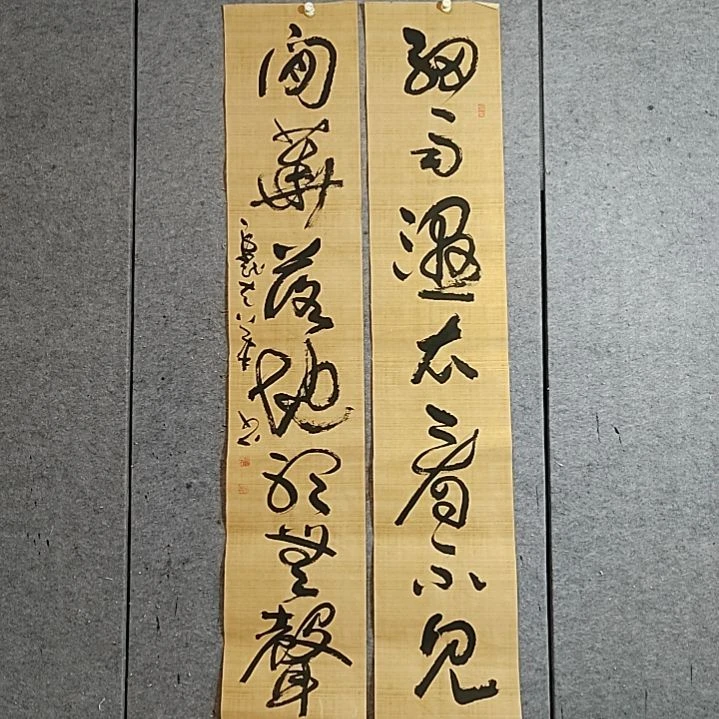 細雨溼衣看不見
閒華落地聽無聲